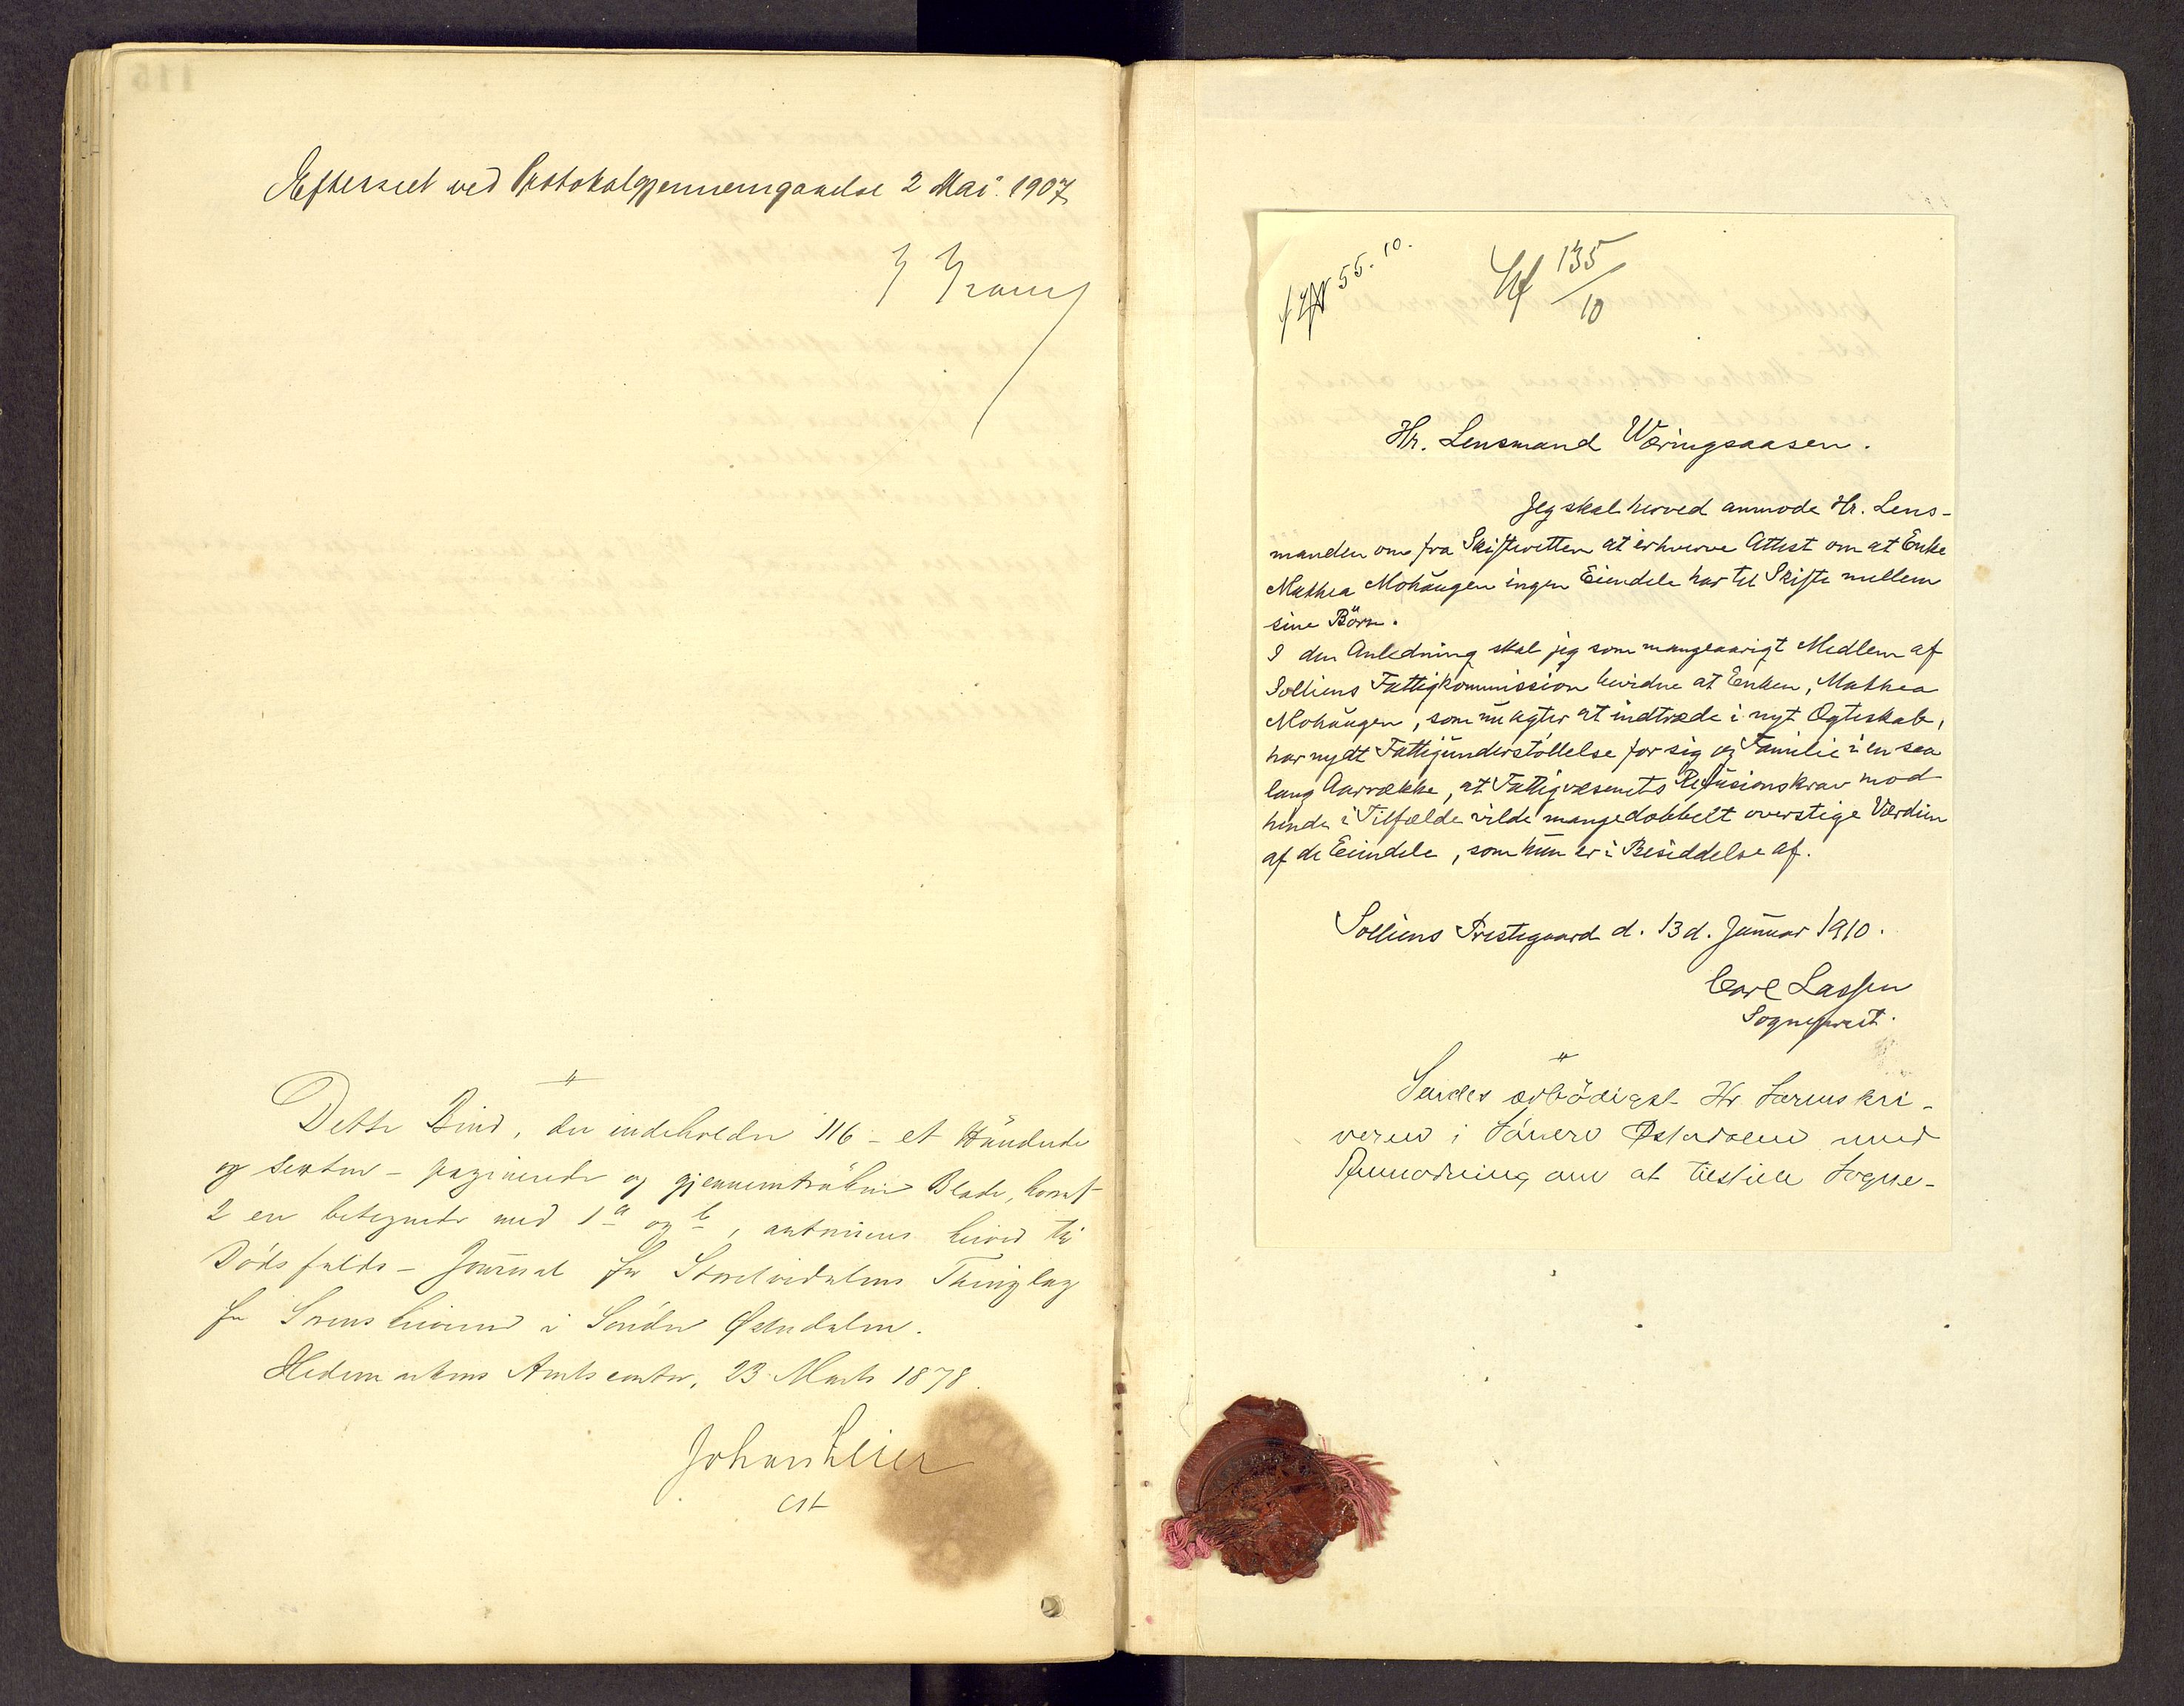 Efterseet ved Protokolgjennemgaaelse 2 Mai 1907
Dette Bind, der indeholder 116 – et Hundrede
og sexten – paginerede og gjennemtrukne Blade, hvoraf
2 en betegnede med 1a og b, autoriseres herved til
Dødsfalds-Journal for Storelvedalens Thinglag
for Sorenskriveren i Søndre Østerdalen.
Hedemarkens Amtscontor, 23 Marts 1878.
cst
55. 10.
135
10
Hr. Lensmand Væringsaasen.
Jeg skal herved anmode Hr. Lens-
manden om fra Skifteretten at erhverve Attest om at Enke
Mathea Mohaugen ingen Eiendele har til Skifte mellem
sine Börn.
I den Anledning skal jeg som mangeaarigt Medlem af
Solliens Fattigkommission bevidne at Enken, Mathea
Mohaugen, som nu agter at indtræde i nyt Ægteskab,
har nydt Fattigunderstöttelse for sig og Familie i en saa
lang Aarrække, at Fattigvæsenets Refusionskrav mod
hende i Tilfælde vilde mangedobbelt overstige Værdien
af de Eiendele, som hun er i Besiddelse af.
Solliens Prestegaard d. 13d. Januar 1910.
Carl Lassen
Sogneprest.
Sendes ærbödigst Hr Sorenskri-
veren i Söndre Østerdalen med
Anmodning om at tilstille Sogne-